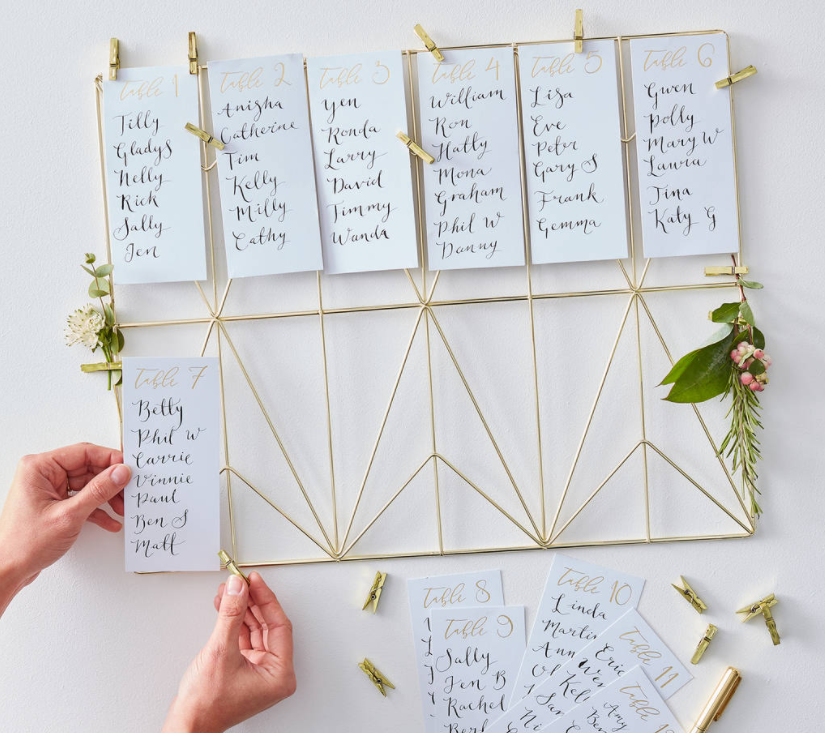 Table 1
Tilly
Gladys
Nelly
Rick
Sally
Jen
Table 2
Anisha
Catherine
Tim
Kelly
Milly
Cathy
Table 3
Yen
Ronda
Larry
David
Timmy
Wanda
Table 4
William
Ron
Hatty
Mona
Graham
Phil W
Danny
Table 5
Lisa
Eve
Peter
Gary S
Frank
Gemma
Table 6
Gwen
Polly
Mary W
Laura
Tina
Katy G
Table 7
Betty
Phil W
Carrie
Vinnie
Paul
Ben S
Matt
Table 8
Table 9
Sally
Jen B
Rachel
Table 10
Linda
Ann
Table 11
Eric
Table
Amy